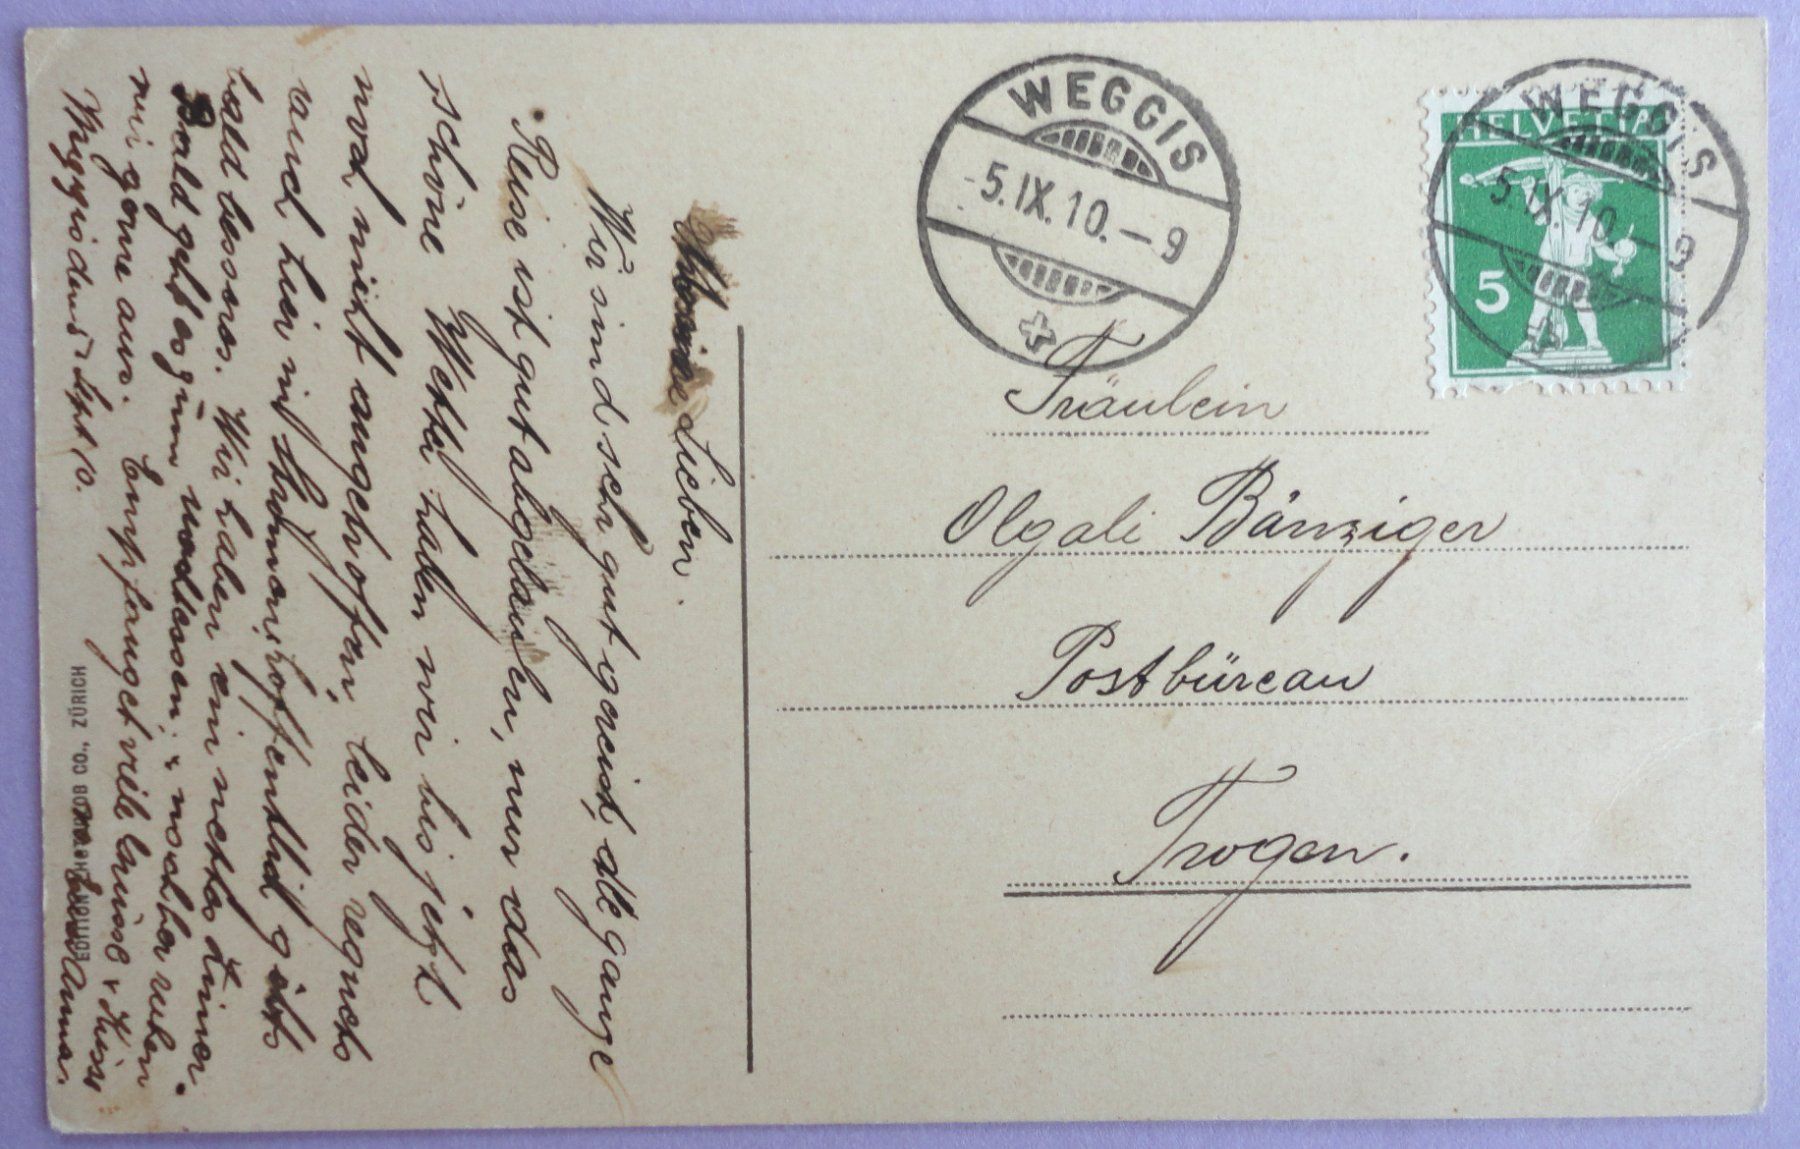 WEGGIS
5.IX.10.–9
WEGGIS
5.IX.10.–9
HELVETIA
5
Fräulein
Olgali Bänziger
Postbüreau
Trogen.
Meine Lieben.
Wir sind sehr gut gereist, die ganze
Reise ist gut abgelaufen, nur das
schöne Wetter haben wir bis jetzt
noch nicht angetroffen, leider regnets
auch hier in Strömen, hoffentlich gibts
bald besseres. Wir haben ein nettes Zimer.
Bald geht es zum &
wir gerne aus. Empfanget viele Grüsse & Küsse
Weggis den 5 Sept 10.
Anna.
EDITION CO., ZÜRICH